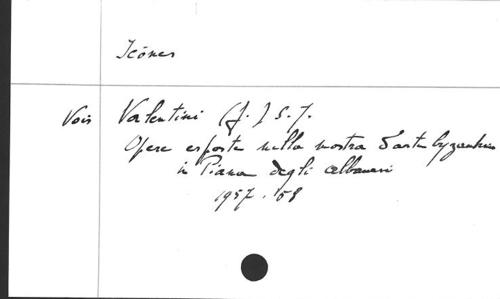 Icônes
Vois Valentini (J.) S.J.
Opere esposte nella mostra d'arte byzantina
in Piana degli Albanesi
1957-58